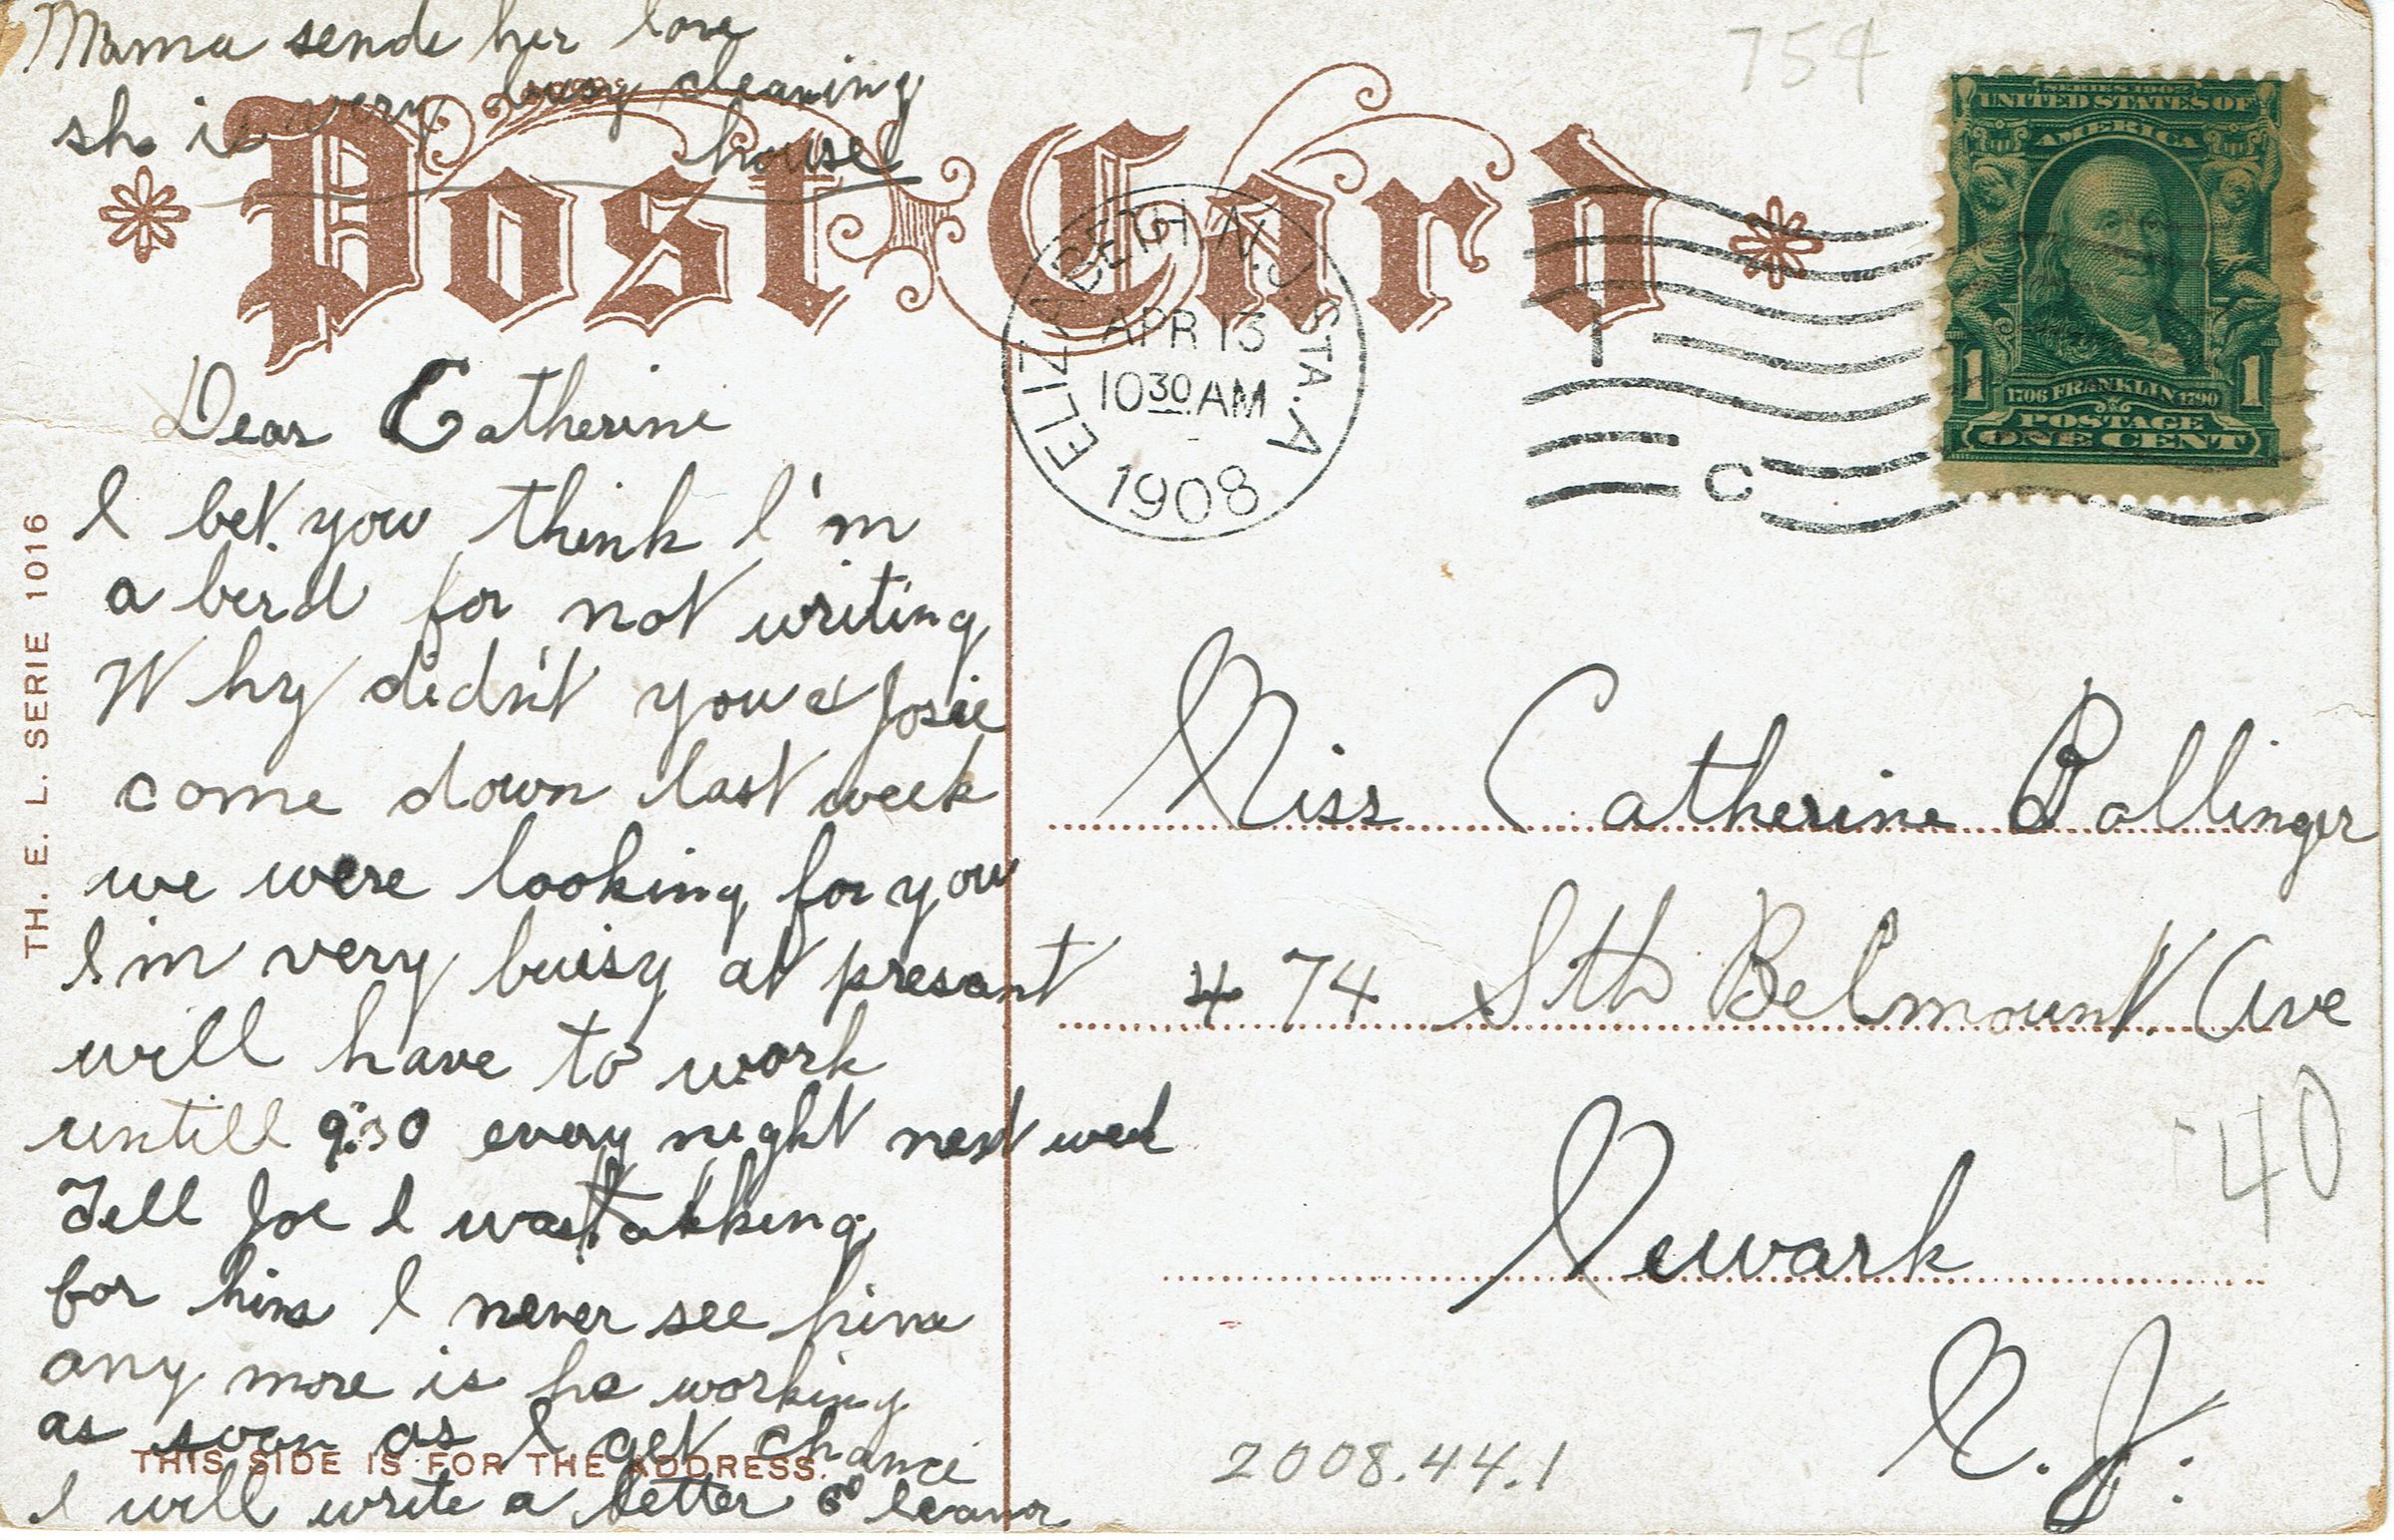 Mama sends her love
she is very busy cleaning
house
Post Card
754
SERIES 1902
UNITED STATES OF
AMERICA
1706 FRANKLIN 1790
1 1
POSTAGE
ONE CENT
ELIZABETH, N.J. STA. A
APR 13
10 30 AM
1908
1
C
Dear Catherine
I bet you think I'm
a berd for not writing
Why didn't you & Josie
come down last week
we were looking for you
I'm very buisy at presant
will have to work
untill 9:30 every night next week
Tell Joe I was talking
for him I never see hime
any more is he working
as soon as I get chance
I will write a letter Eleanor
TH. E. L. SERIE 1016
THIS SIDE IS FOR THE ADDRESS.
Miss Catherine Bollinger
474 Sth Belmount Ave
40
Newark
N. J.
2008.44.1